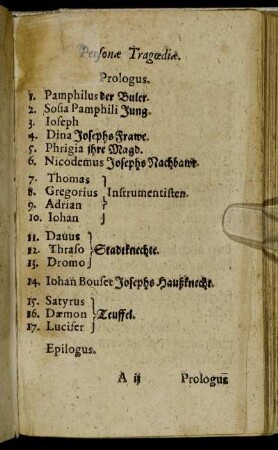 Personæ Tragœdiæ.
Prologus.
1. Pamphilus der Buler.
2. Sosia Pamphili Jung.
3. Ioseph
4. Dina Josephs Frawe.
5. Phrigia ihre Magd.
6. Nicodemus Josephs Nachbawr.
7. Thomas
8. Gregorius Instrumentisten.
9. Adrian
10. Iohan
11. Dauus
12. Thraso Stadtknechte.
13. Dromo
14. Iohan Bouset Josephs Haußknecht.
15. Satyrus
16. Dæmon Teuffel.
17. Lucifer
Epilogus.
A ij Prologus